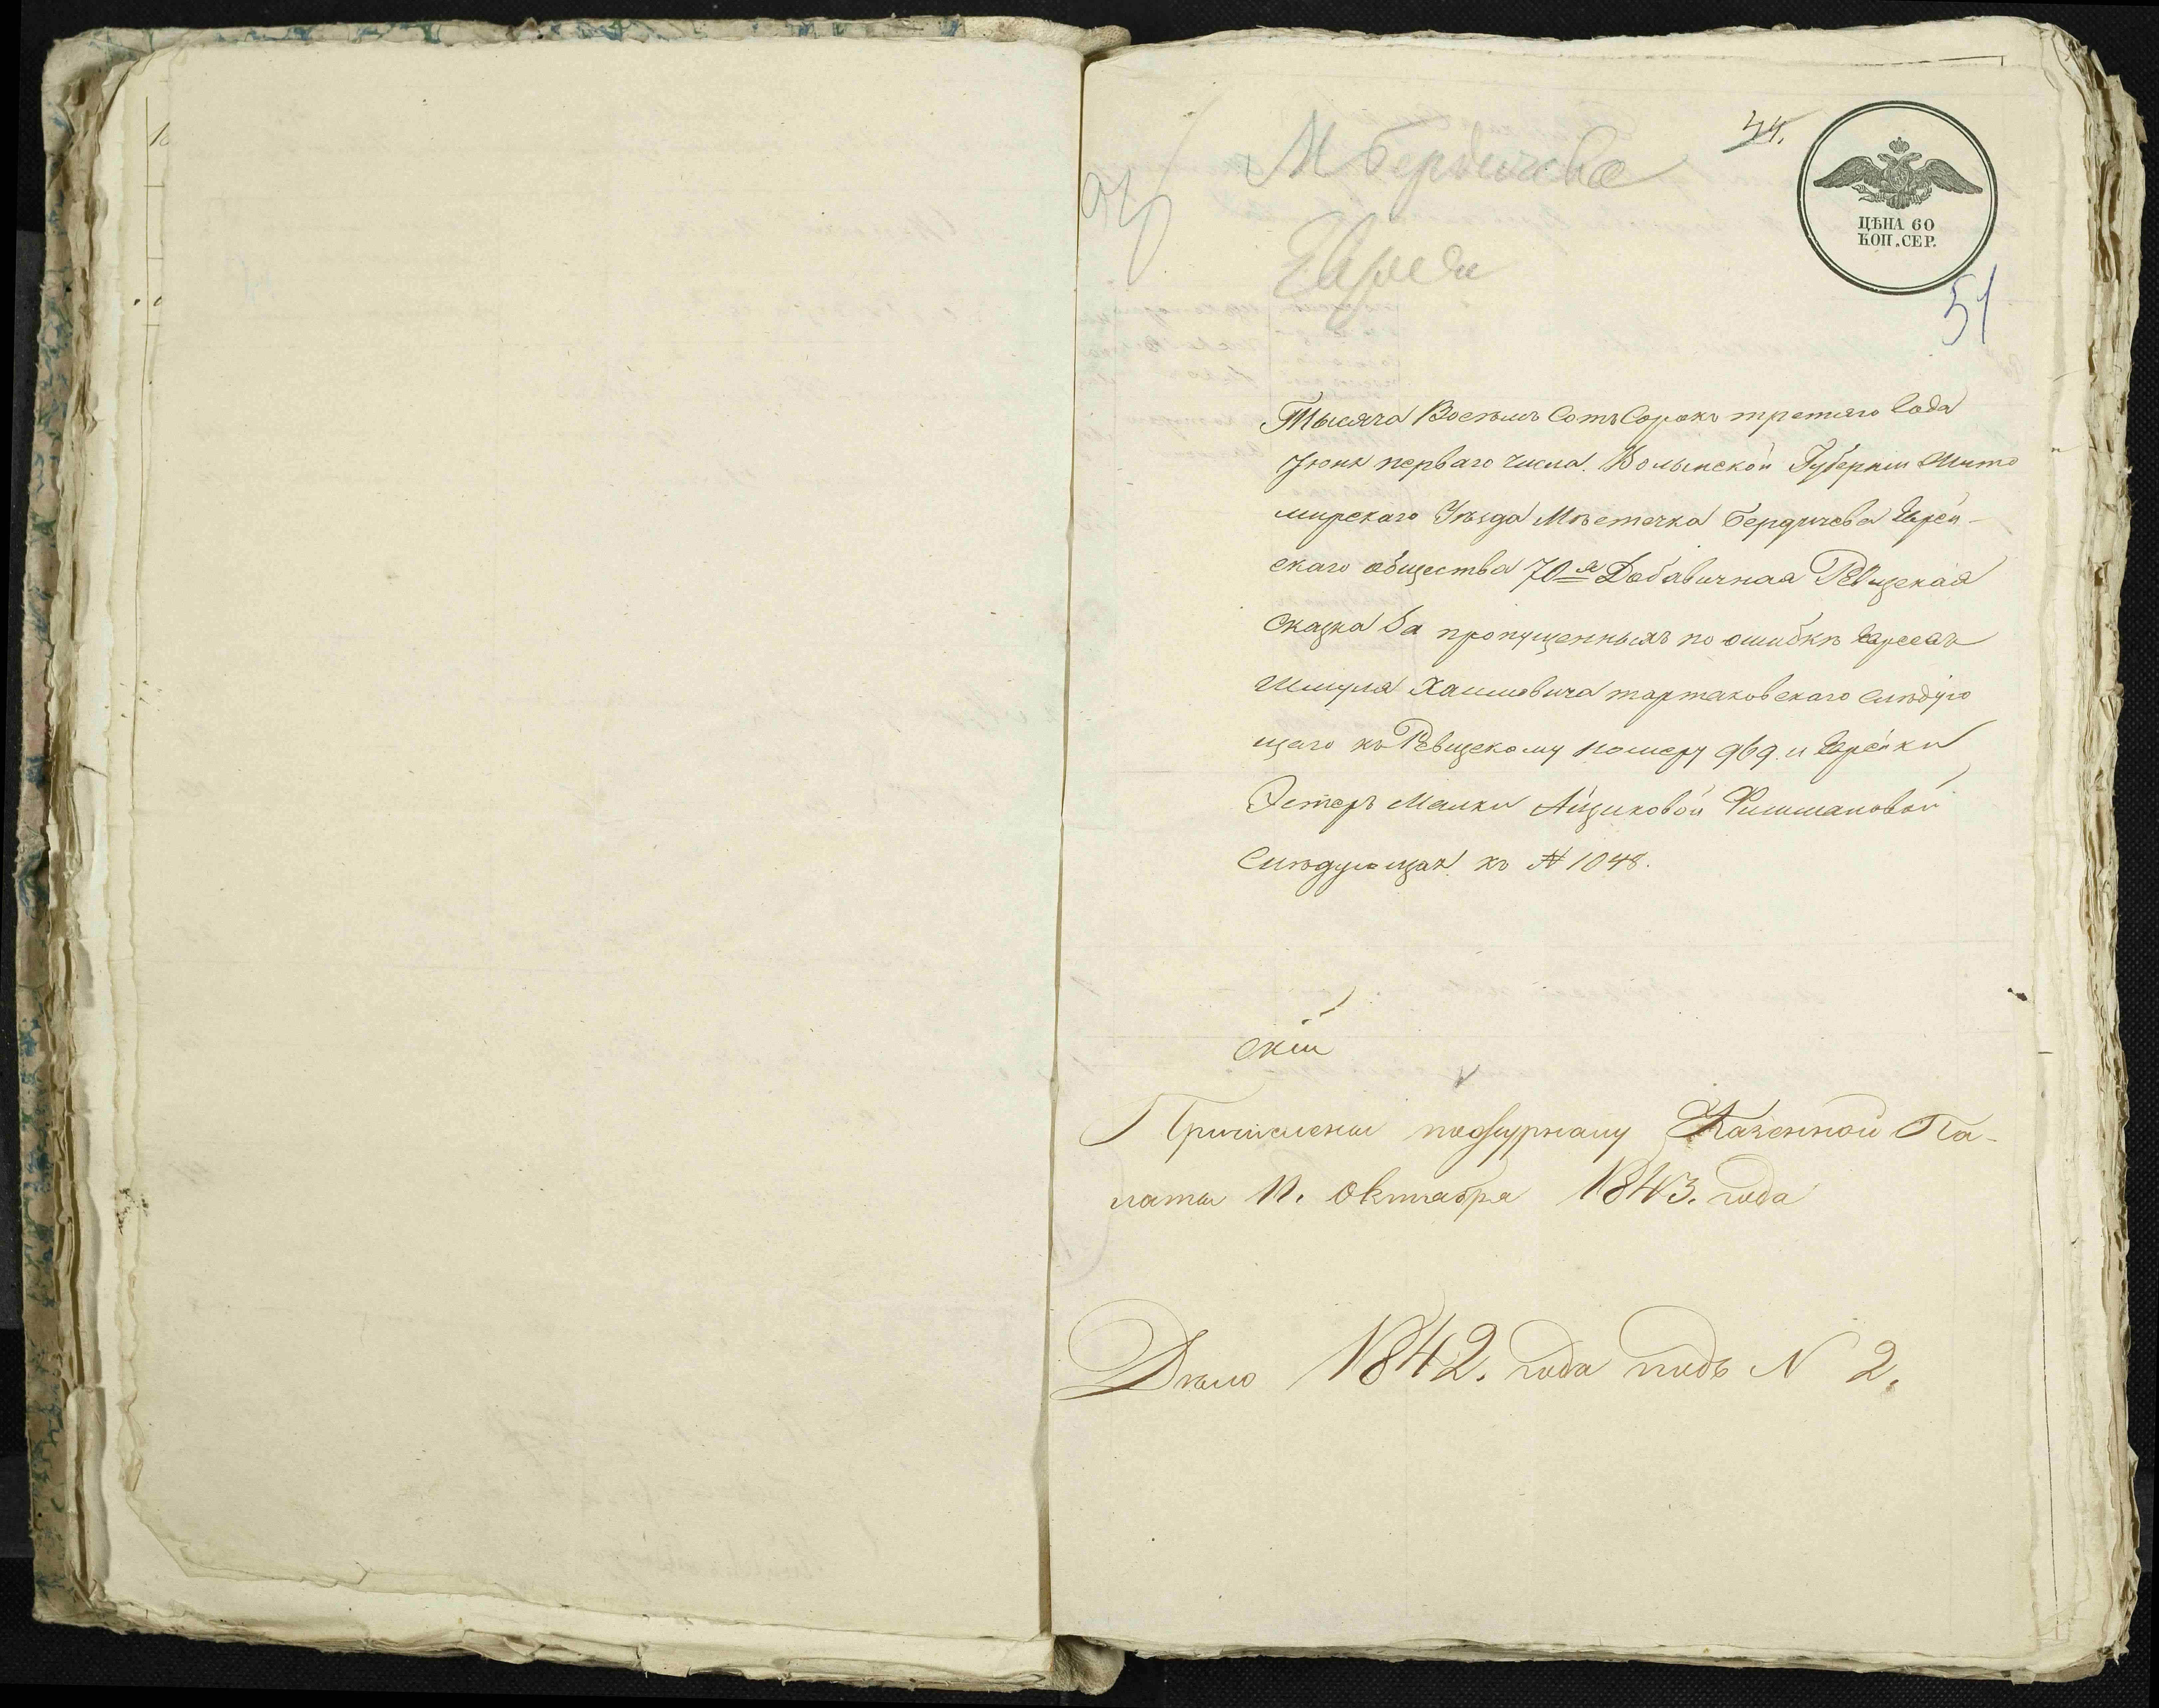 М Бердичева
44.
ЦѢНА 60
КОП. СЕР.
Евреи
51
Тысяча Восѣмъ Сотъ Сорокъ третяго Года
Іюня перваго числа. Волынской Губерніи Жито
мирскаго Уѣзда Мѣстечка Бердичева Еврей-
скаго общества 70я Добавичная Ревизская
Сказка о пропущенныхъ по ошибкѣ Евреевъ
Шмуля Хаимовича тартаковскаго слѣдую
щаго къ Ревизскому номеру 969. и Еврейки
Эстеръ Малки Айзиковой Фишмановой
Слѣдующая къ № 1048.
Сіи
Причислены по журналу Казенной Па-
латы 11. Октября 1843. года
Дѣло 1842. года подъ N 2.